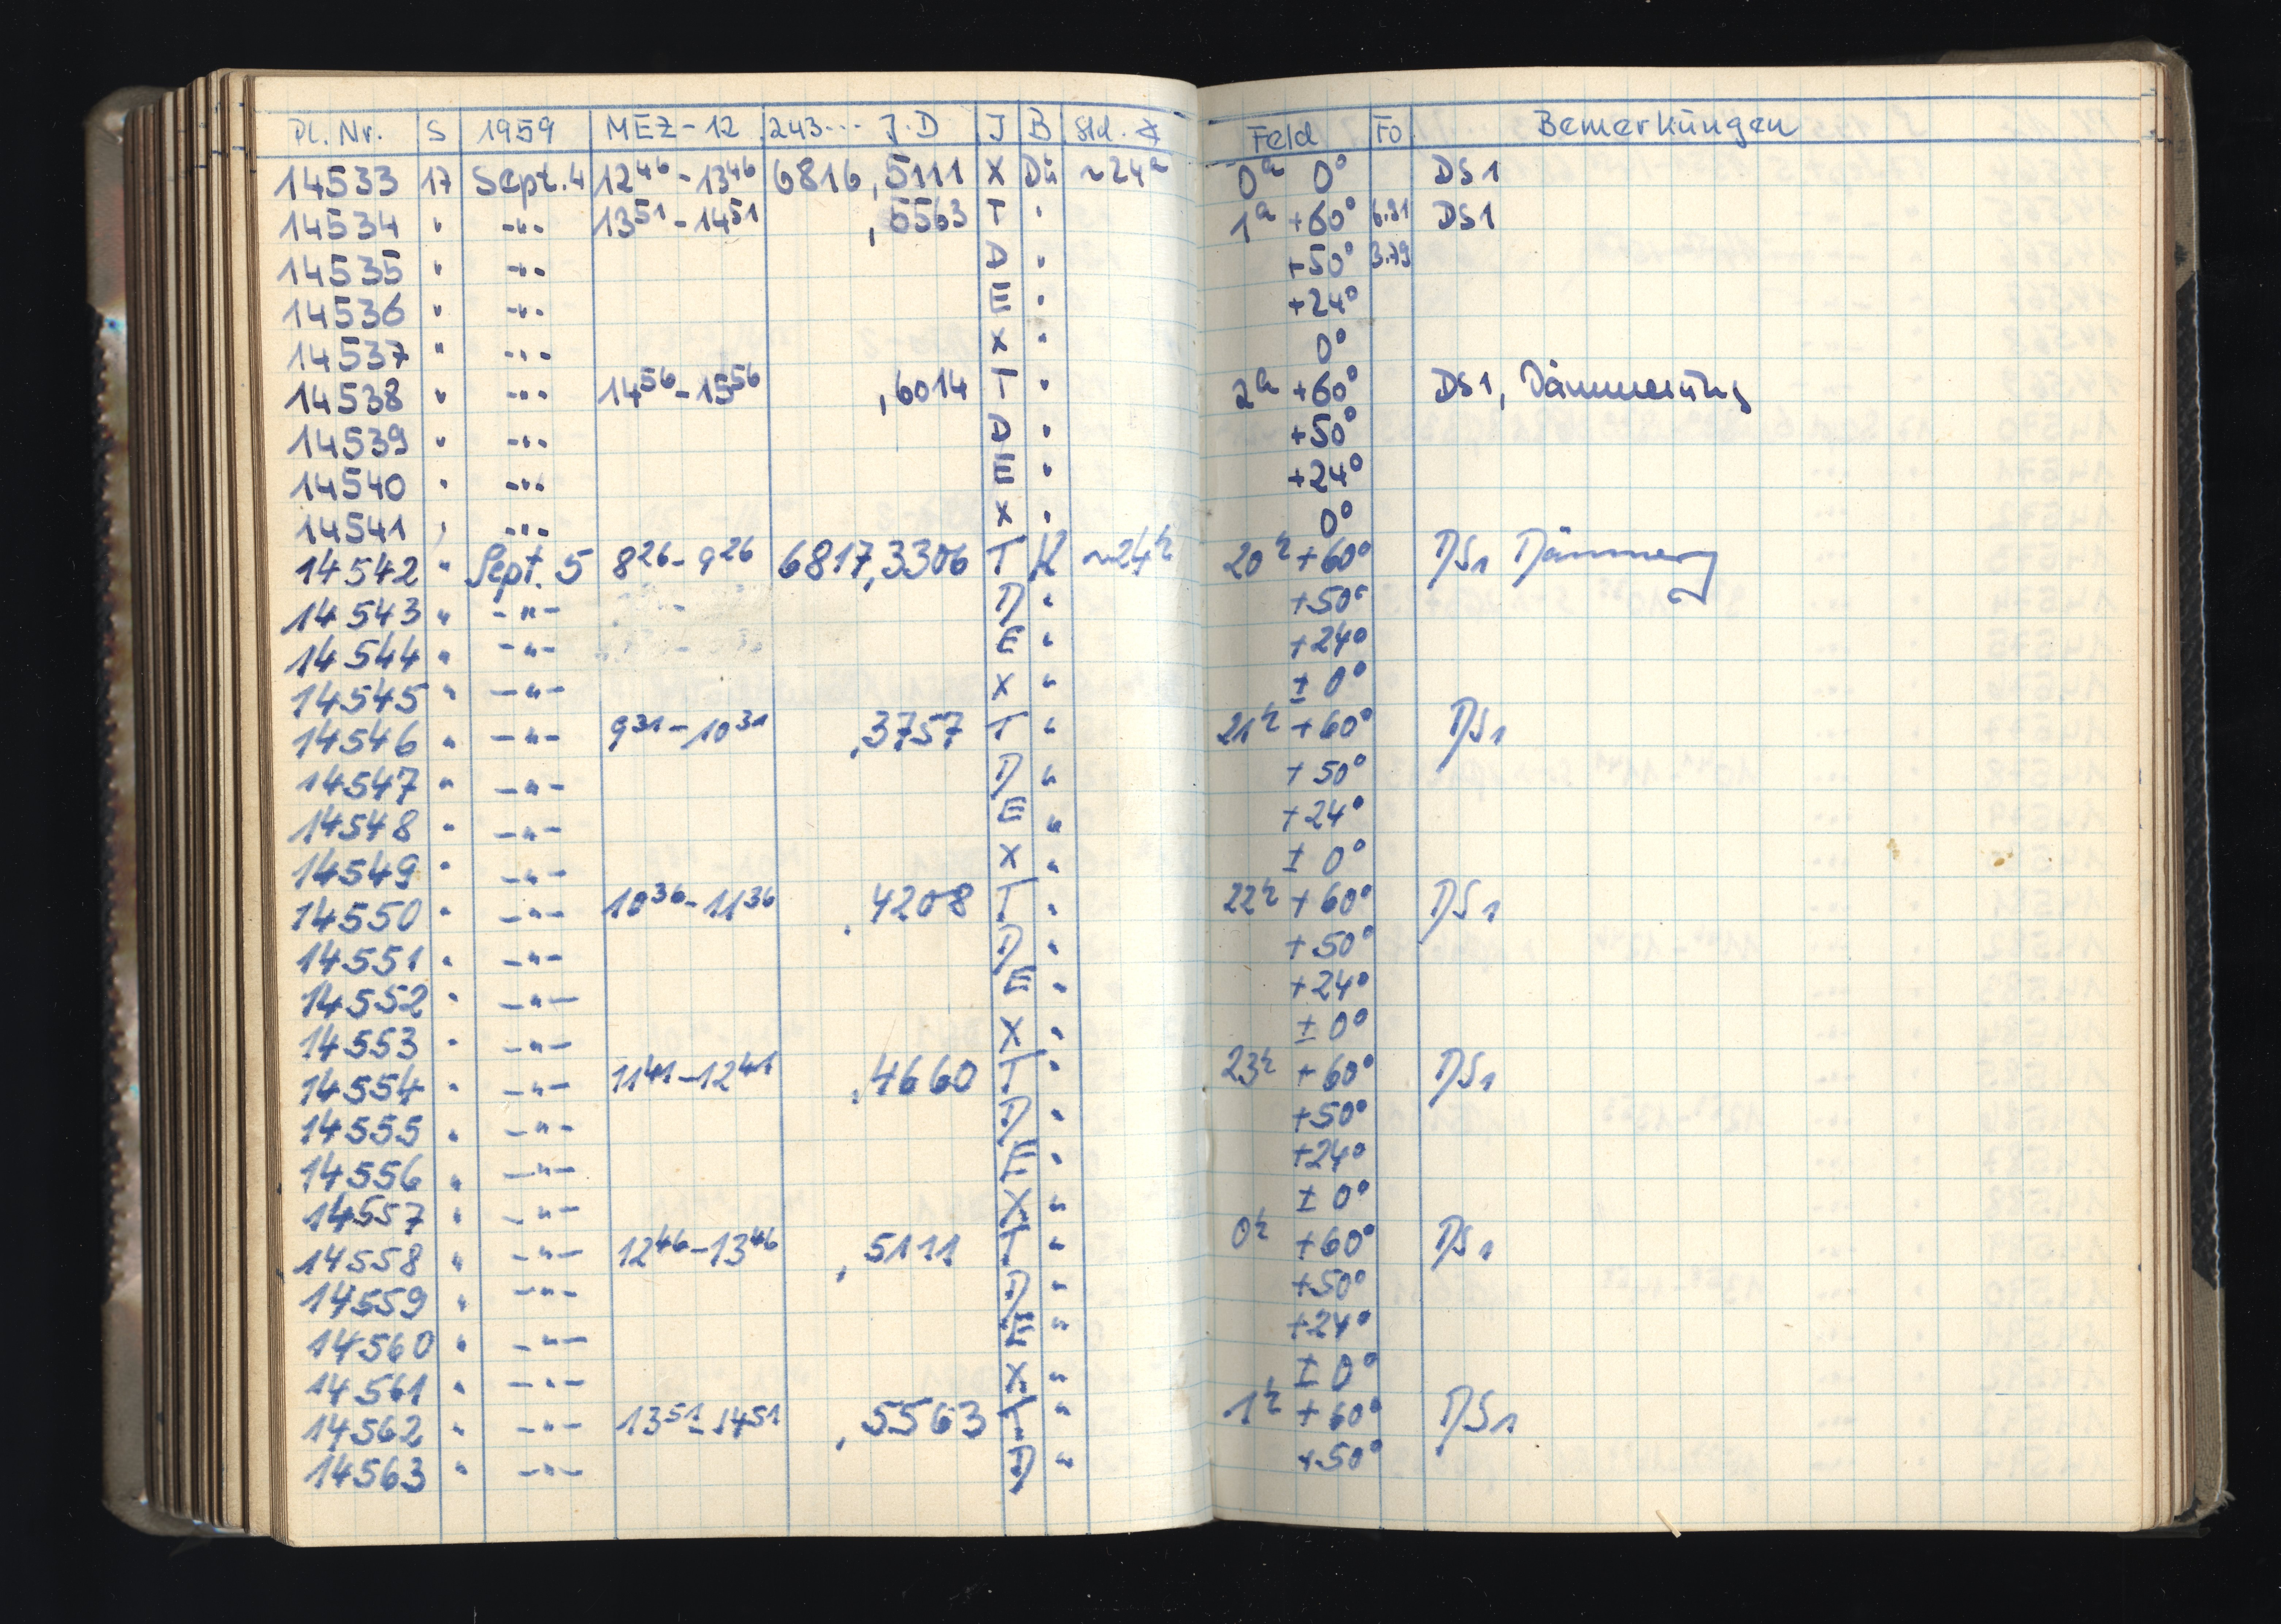 Pl. Nr. S 1959 MEZ-12 243... J.D J B Std. ∢ Feld Fo Bemerkungen
14533 17 Sept. 4 12⁴⁶-13⁴⁶ 6816,5111 X Dü ~24ʰ 0ʰ 0° DS1
14534 " -"- 13⁵¹-14⁵¹ ,5563 T " 1ʰ +60° 6.21 DS1
14535 " -"- D " +50° 3.79
14536 " -"- E " +24°
14537 " -"- X " 0°
14538 " -"- 14⁵⁶-15⁵⁶ ,6014 T " 2ʰ +60° DS1, Dämmerung
14539 " -"- D " +50°
14540 " -"- E " +24°
14541 " -"- X " 0°
14542 " Sept. 5 8²⁶-9²⁶ 6817,3306 T K ~24ʰ 20ʰ +60° DS1 Dämmerg
14543 " -"- D " +50°
14544 " -"- E " +24°
14545 " -"- X " ± 0°
14546 " -"- 9³¹-10³¹ ,3757 T " 21ʰ +60° DS1
14547 " -"- D " +50°
14548 " -"- E " +24°
14549 " -"- X " ± 0°
14550 " -"- 10³⁶-11³⁶ ,4208 T " 22ʰ +60° DS1
14551 " -"- D " +50°
14552 " -"- E " +24°
14553 " -"- X " ± 0°
14554 " -"- 11⁴¹-12⁴¹ ,4660 T " 23ʰ +60° DS1
14555 " -"- D " +50°
14556 " -"- E " +24°
14557 " -"- X " ± 0°
14558 " -"- 12⁴⁶-13⁴⁶ ,5111 T " 0ʰ +60° DS1
14559 " -"- D " +50°
14560 " -"- E " +24°
14561 " -"- X " ± 0°
14562 " -"- 13⁵¹-14⁵¹ ,5563 T " 1ʰ +60° DS1
14563 " -"- D " +50°